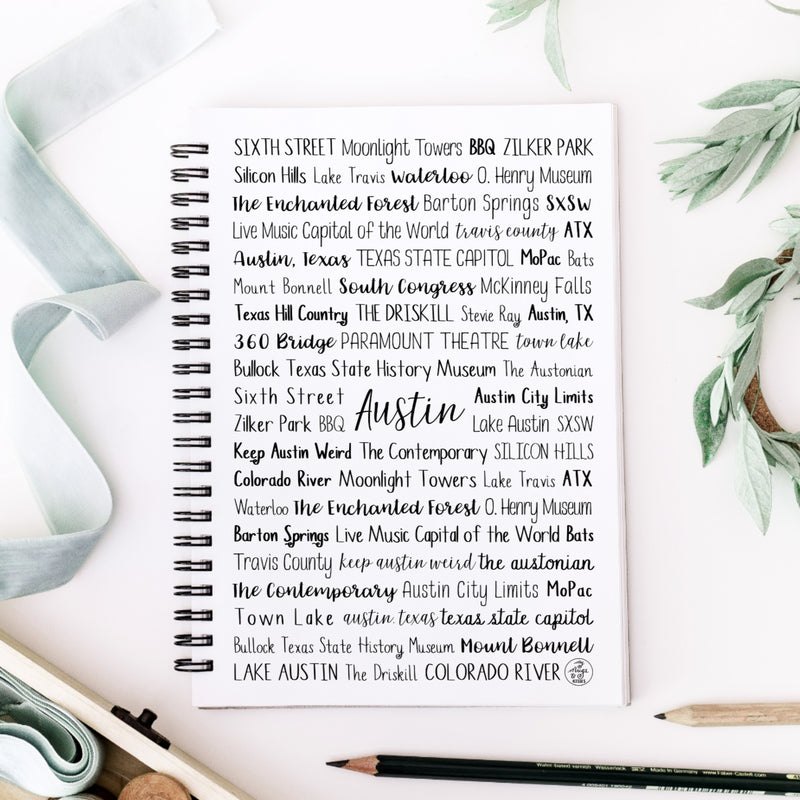 SIXTH STREET Moonlight Towers BBQ ZILKER PARK
Silicon Hills Lake Travis Waterloo O. Henry Museum
The Enchanted Forest Barton Springs SXSW
Live Music Capital of the World travis county ATX
Austin, Texas TEXAS STATE CAPITOL MoPac Bats
Mount Bonnell South Congress McKinney Falls
Texas Hill Country THE DRISKILL Stevie Ray Austin, TX
360 Bridge PARAMOUNT THEATRE town lake
Bullock Texas State History Museum The Austonian
Sixth Street Austin City Limits
Austin
Zilker Park BBQ Lake Austin SXSW
Keep Austin Weird The Contemporary SILICON HILLS
Colorado River Moonlight Towers Lake Travis ATX
Waterloo The Enchanted Forest O. Henry Museum
Barton Springs Live Music Capital of the World Bats
Travis County keep austin weird the austonian
The Contemporary Austin City Limits MoPac
Town Lake austin, texas texas state capitol
Bullock Texas State History Museum Mount Bonnell
LAKE AUSTIN The Driskill COLORADO RIVER
Made in Germany www.Faber-Castell.com